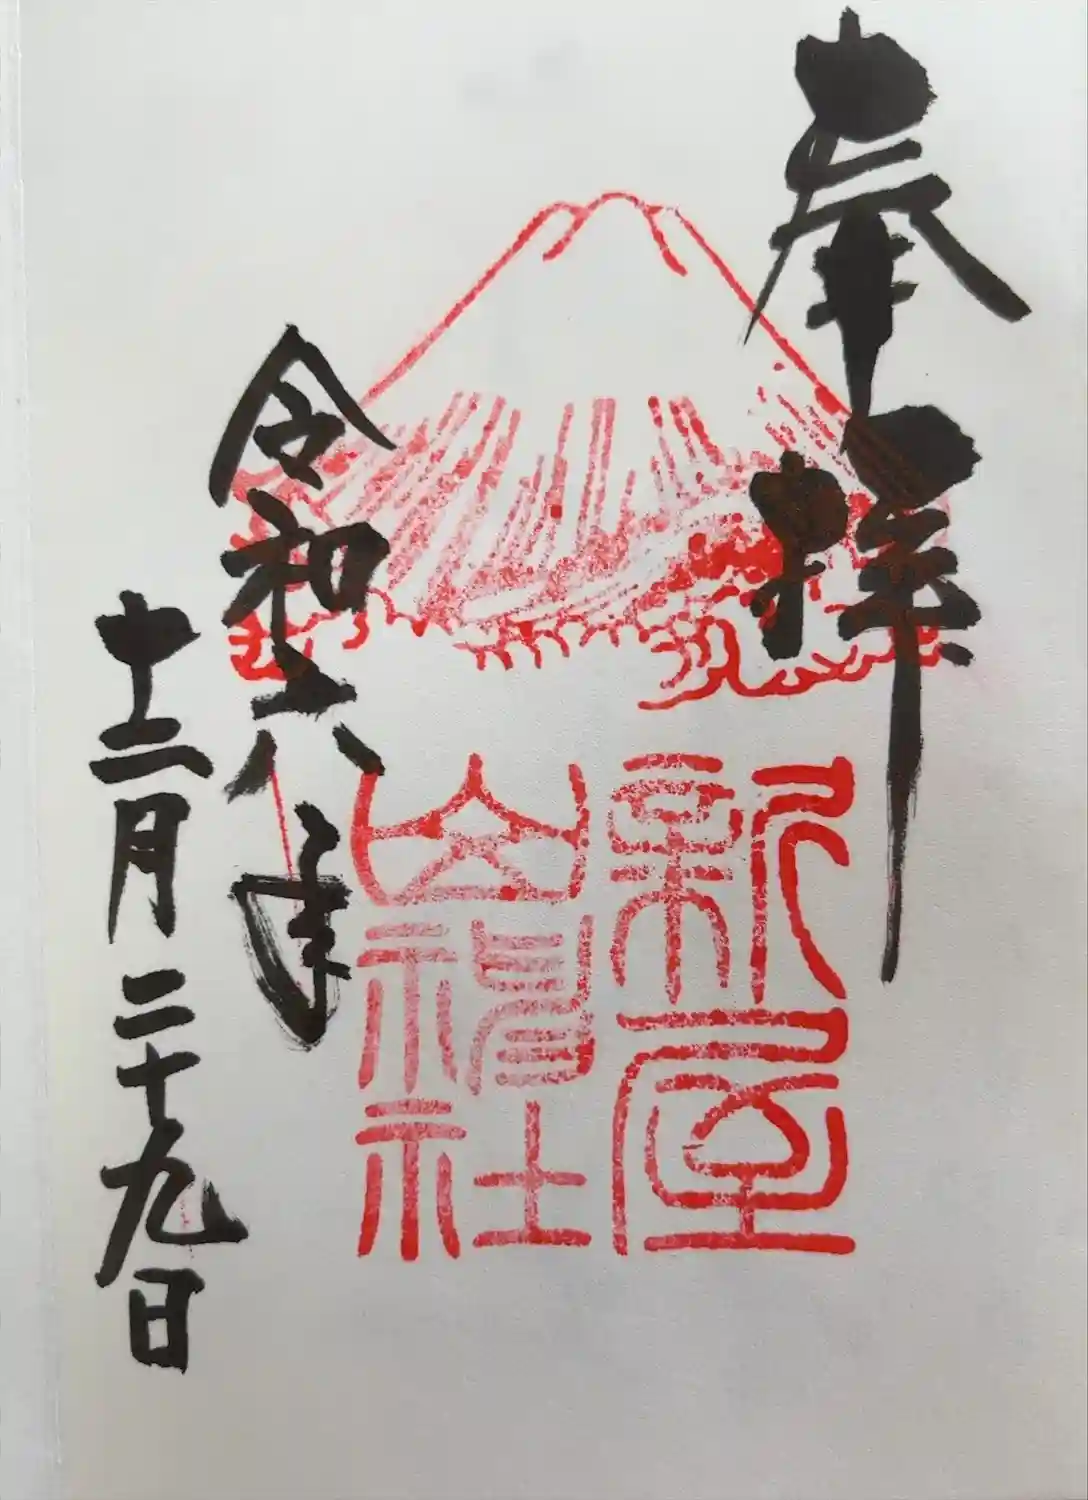 奉拝
新屋
山神社
令和六年
十二月二十九日